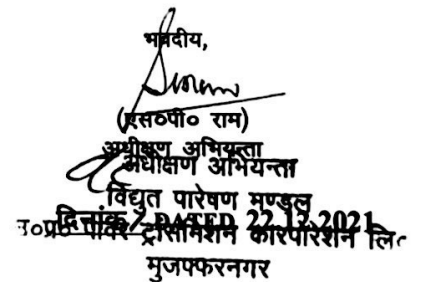 भवदीय,
(एस०पी० राम)
अधीक्षण अभियन्ता
अधीक्षण अभियन्ता
विद्युत पारेषण मण्डल
दिनांक / DATED 22.12.2021
उ०प्र० पावर ट्रांसमिशन कारपोरेशन लि०
मुजफ्फरनगर